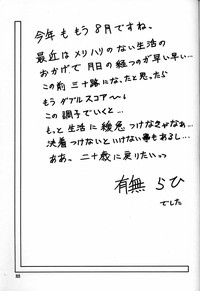 今年ももう8月ですね、
最近はメリハリのない生活の
おかげで月日の経つのが早い早い…
この前三十路になったと思ったら
もうダブルスコア〜〜
この調子でいくと…
もっと生活に緩急つけなきゃなぁ…
決着つけないといけない事もあるし…
ああ、二十歳に戻りたいっ
有無らひ
でした